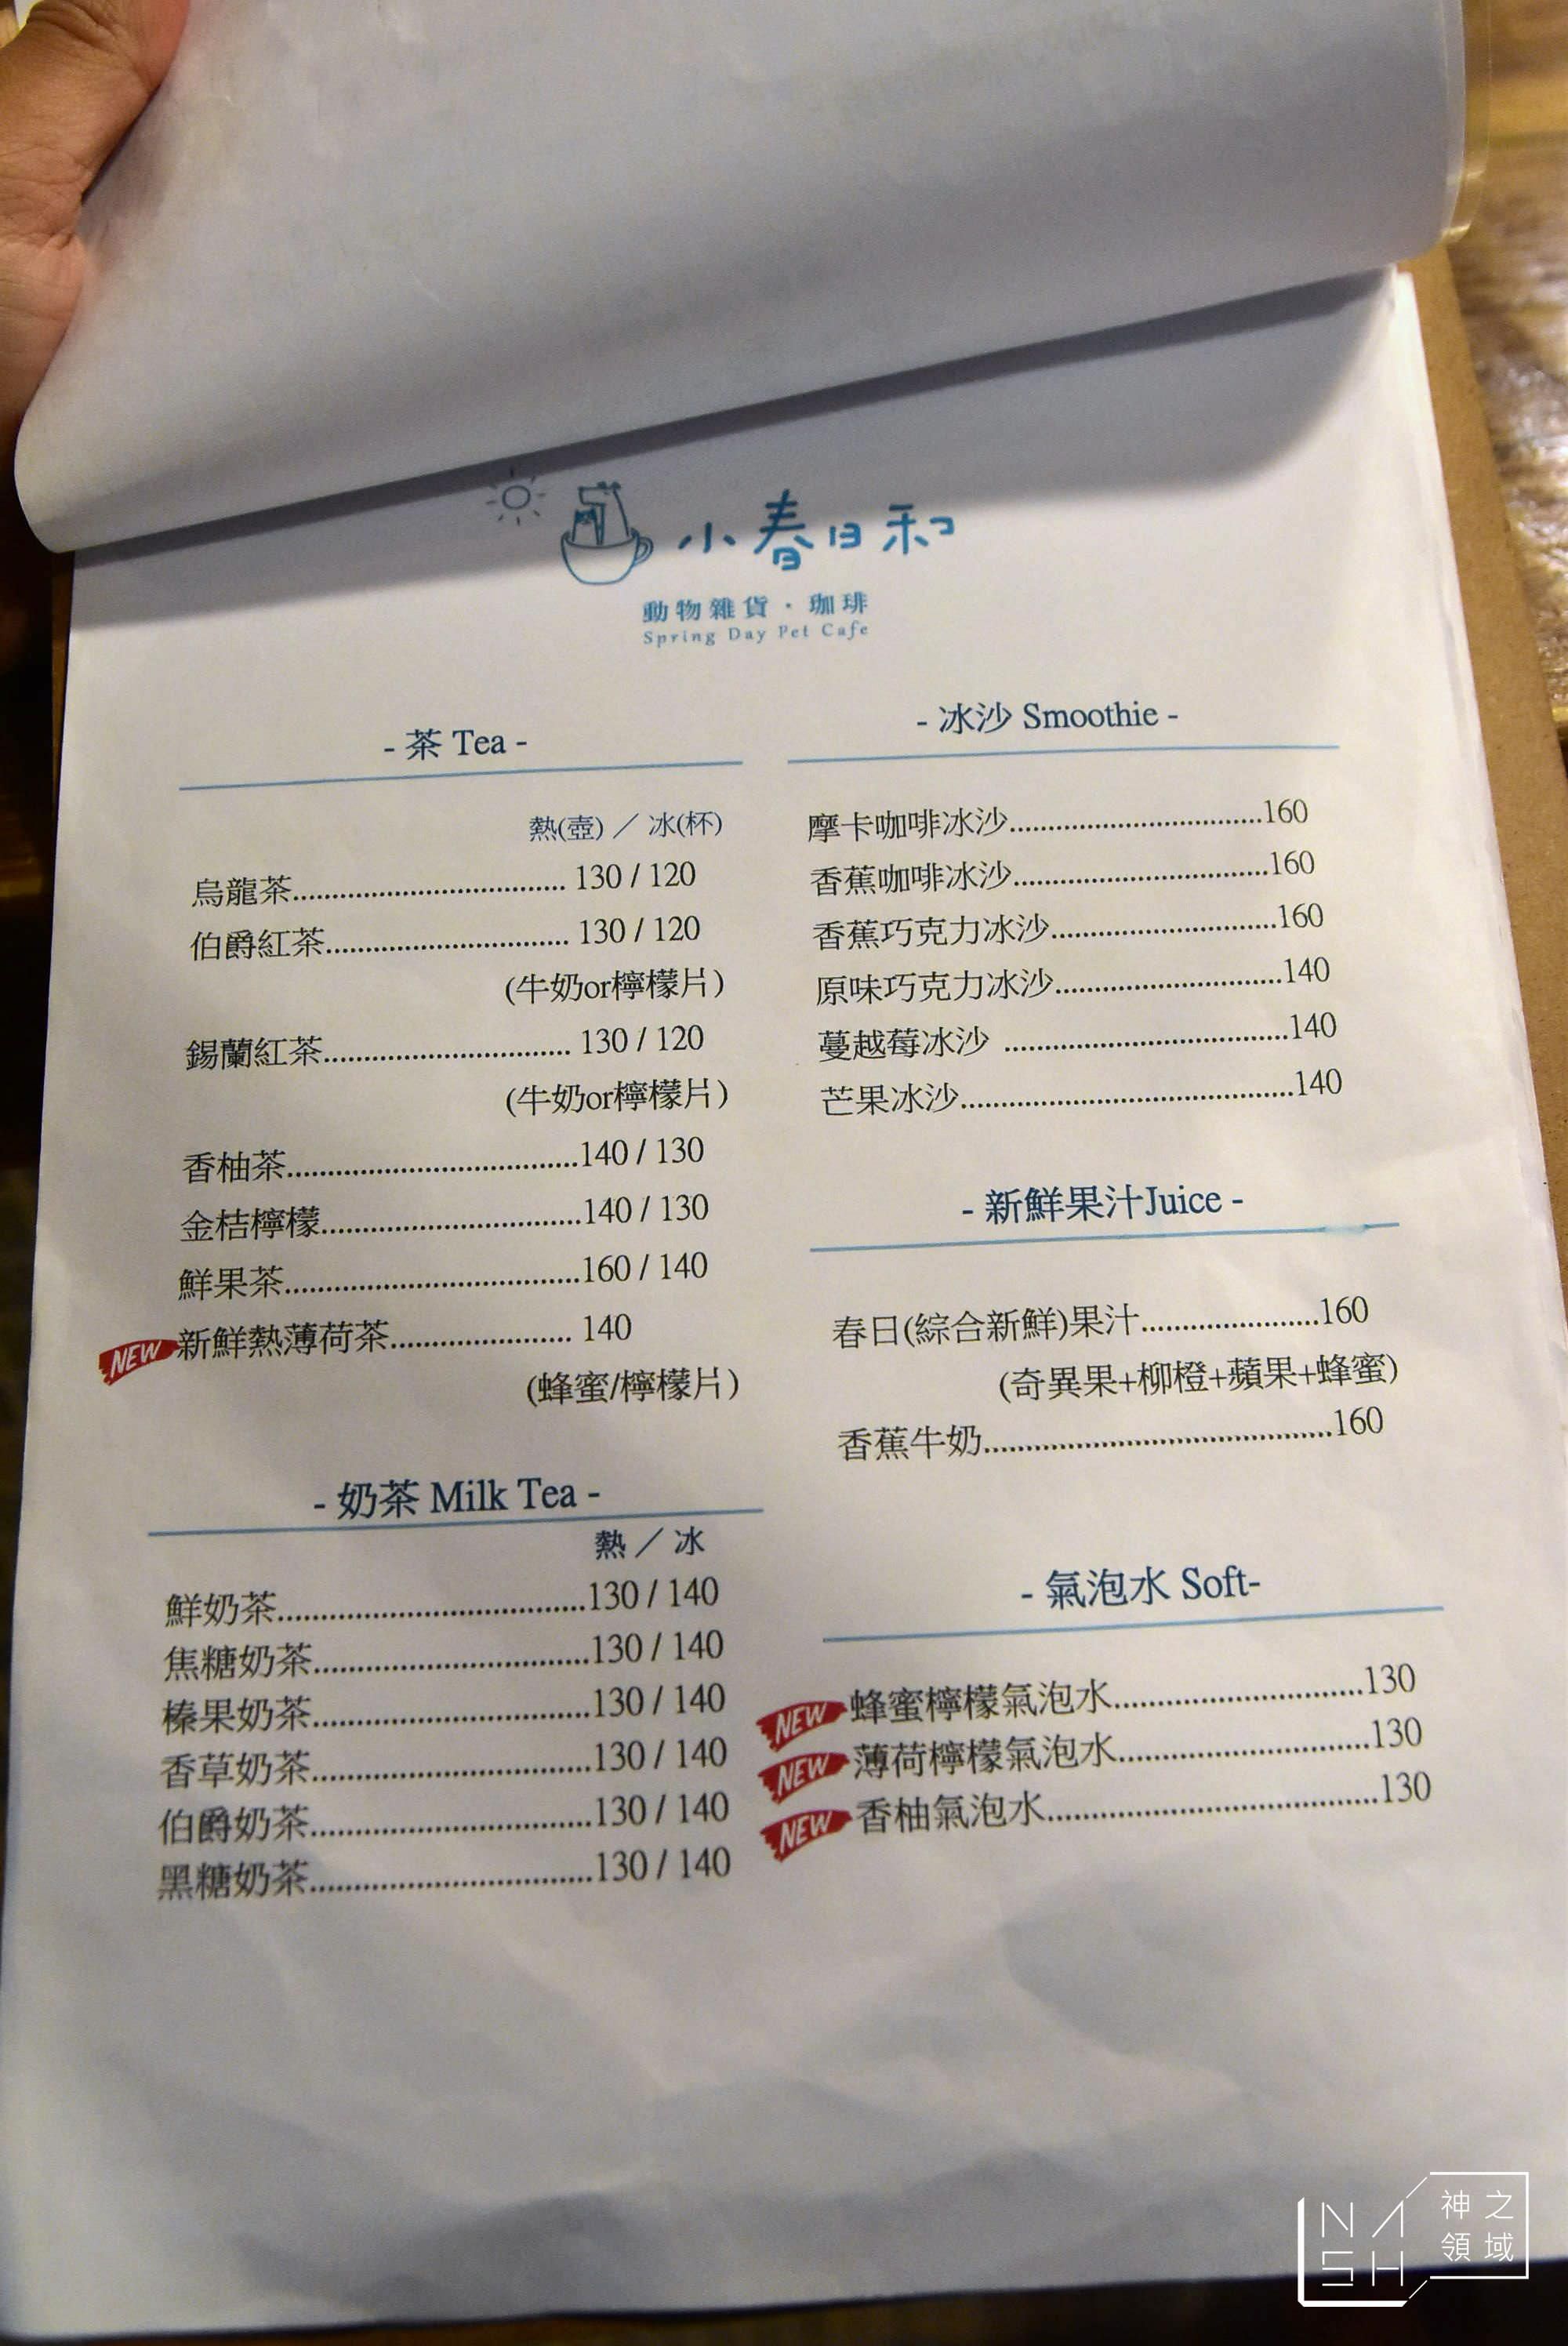 小春日和
動物雜貨・珈琲
Spring Day Pet Cafe
- 茶 Tea -
熱(壺) ／ 冰(杯)
烏龍茶.................................. 130 / 120
伯爵紅茶.............................. 130 / 120
(牛奶or檸檬片)
錫蘭紅茶.............................. 130 / 120
(牛奶or檸檬片)
香柚茶....................................140 / 130
金桔檸檬................................140 / 130
鮮果茶....................................160 / 140
NEW 新鮮熱薄荷茶...................... 140
(蜂蜜/檸檬片)
- 奶茶 Milk Tea -
熱 ／ 冰
鮮奶茶.....................................130 / 140
焦糖奶茶.................................130 / 140
榛果奶茶.................................130 / 140
香草奶茶.................................130 / 140
伯爵奶茶.................................130 / 140
黑糖奶茶.................................130 / 140
- 冰沙 Smoothie -
摩卡咖啡冰沙...............................160
香蕉咖啡冰沙...............................160
香蕉巧克力冰沙...........................160
原味巧克力冰沙...........................140
蔓越莓冰沙 ..................................140
芒果冰沙........................................140
- 新鮮果汁Juice -
春日(綜合新鮮)果汁.....................160
(奇異果+柳橙+蘋果+蜂蜜)
香蕉牛奶.........................................160
- 氣泡水 Soft-
NEW 蜂蜜檸檬氣泡水.............................130
NEW 薄荷檸檬氣泡水.............................130
NEW 香柚氣泡水.......................................130
NASH
神之領域